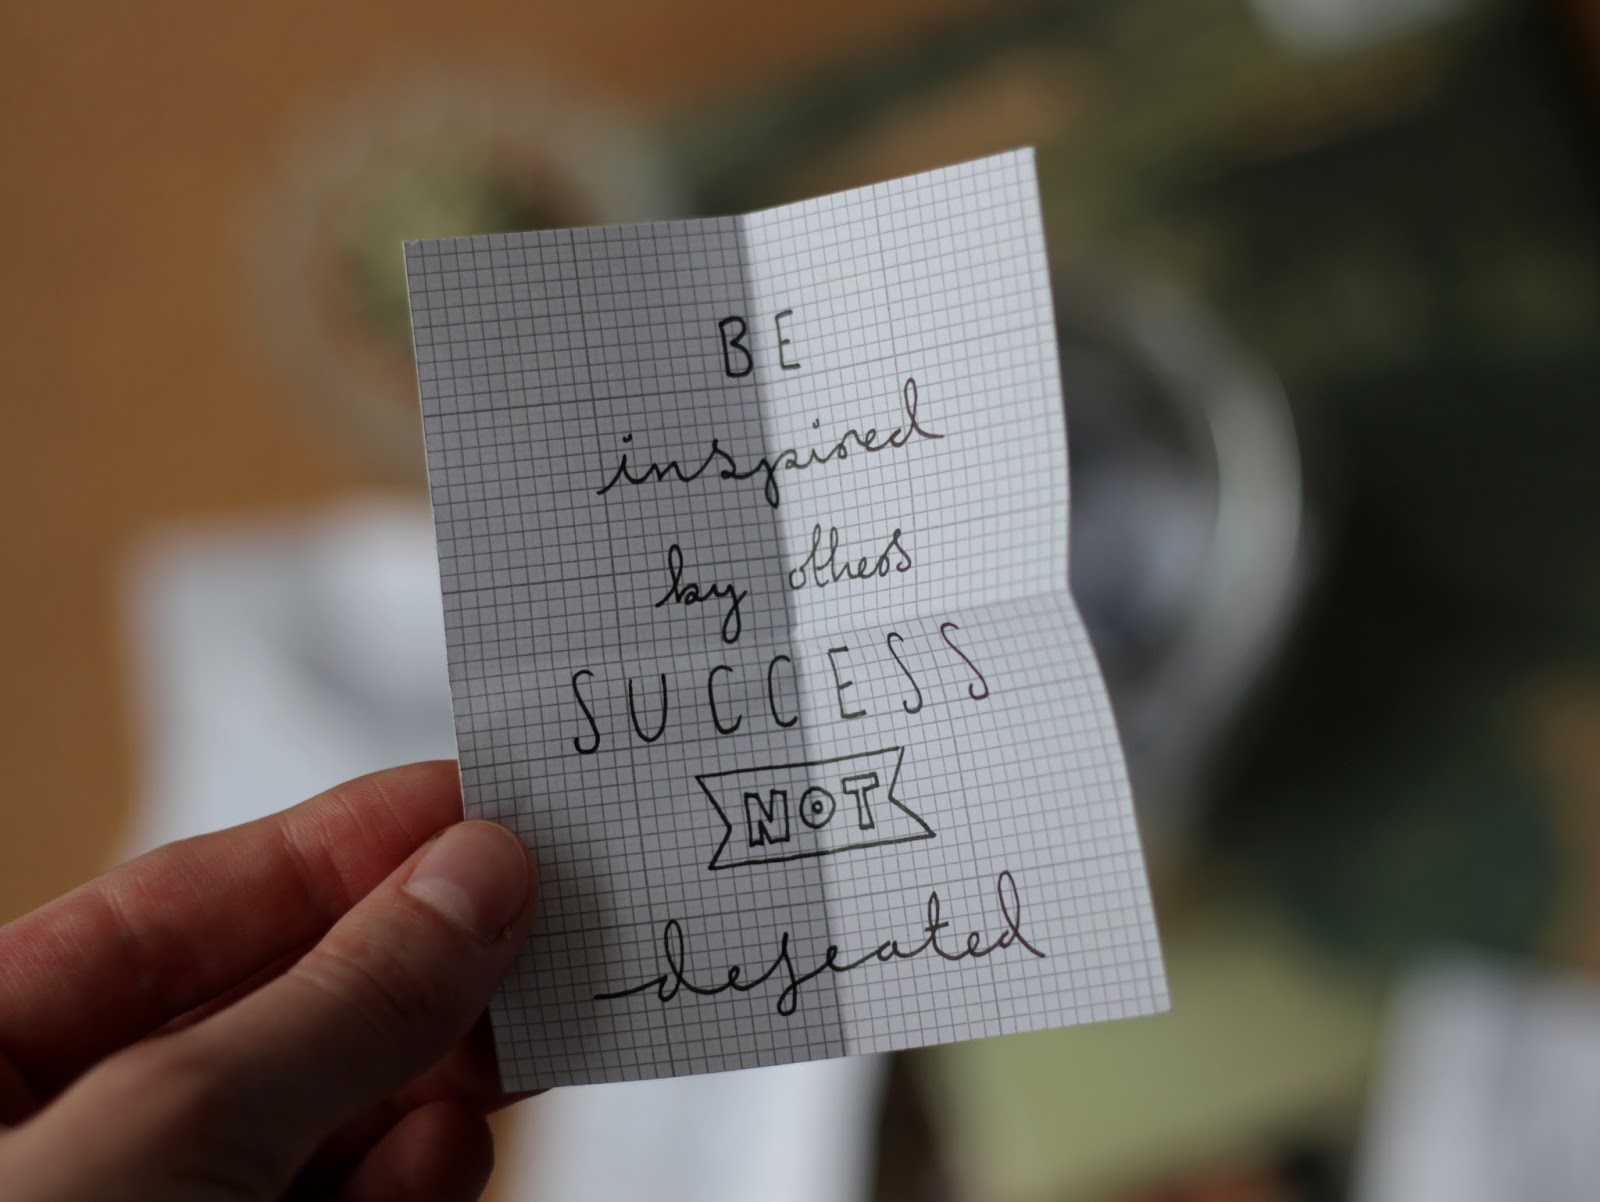 BE
inspired
by others
SUCCESS
NOT
defeated